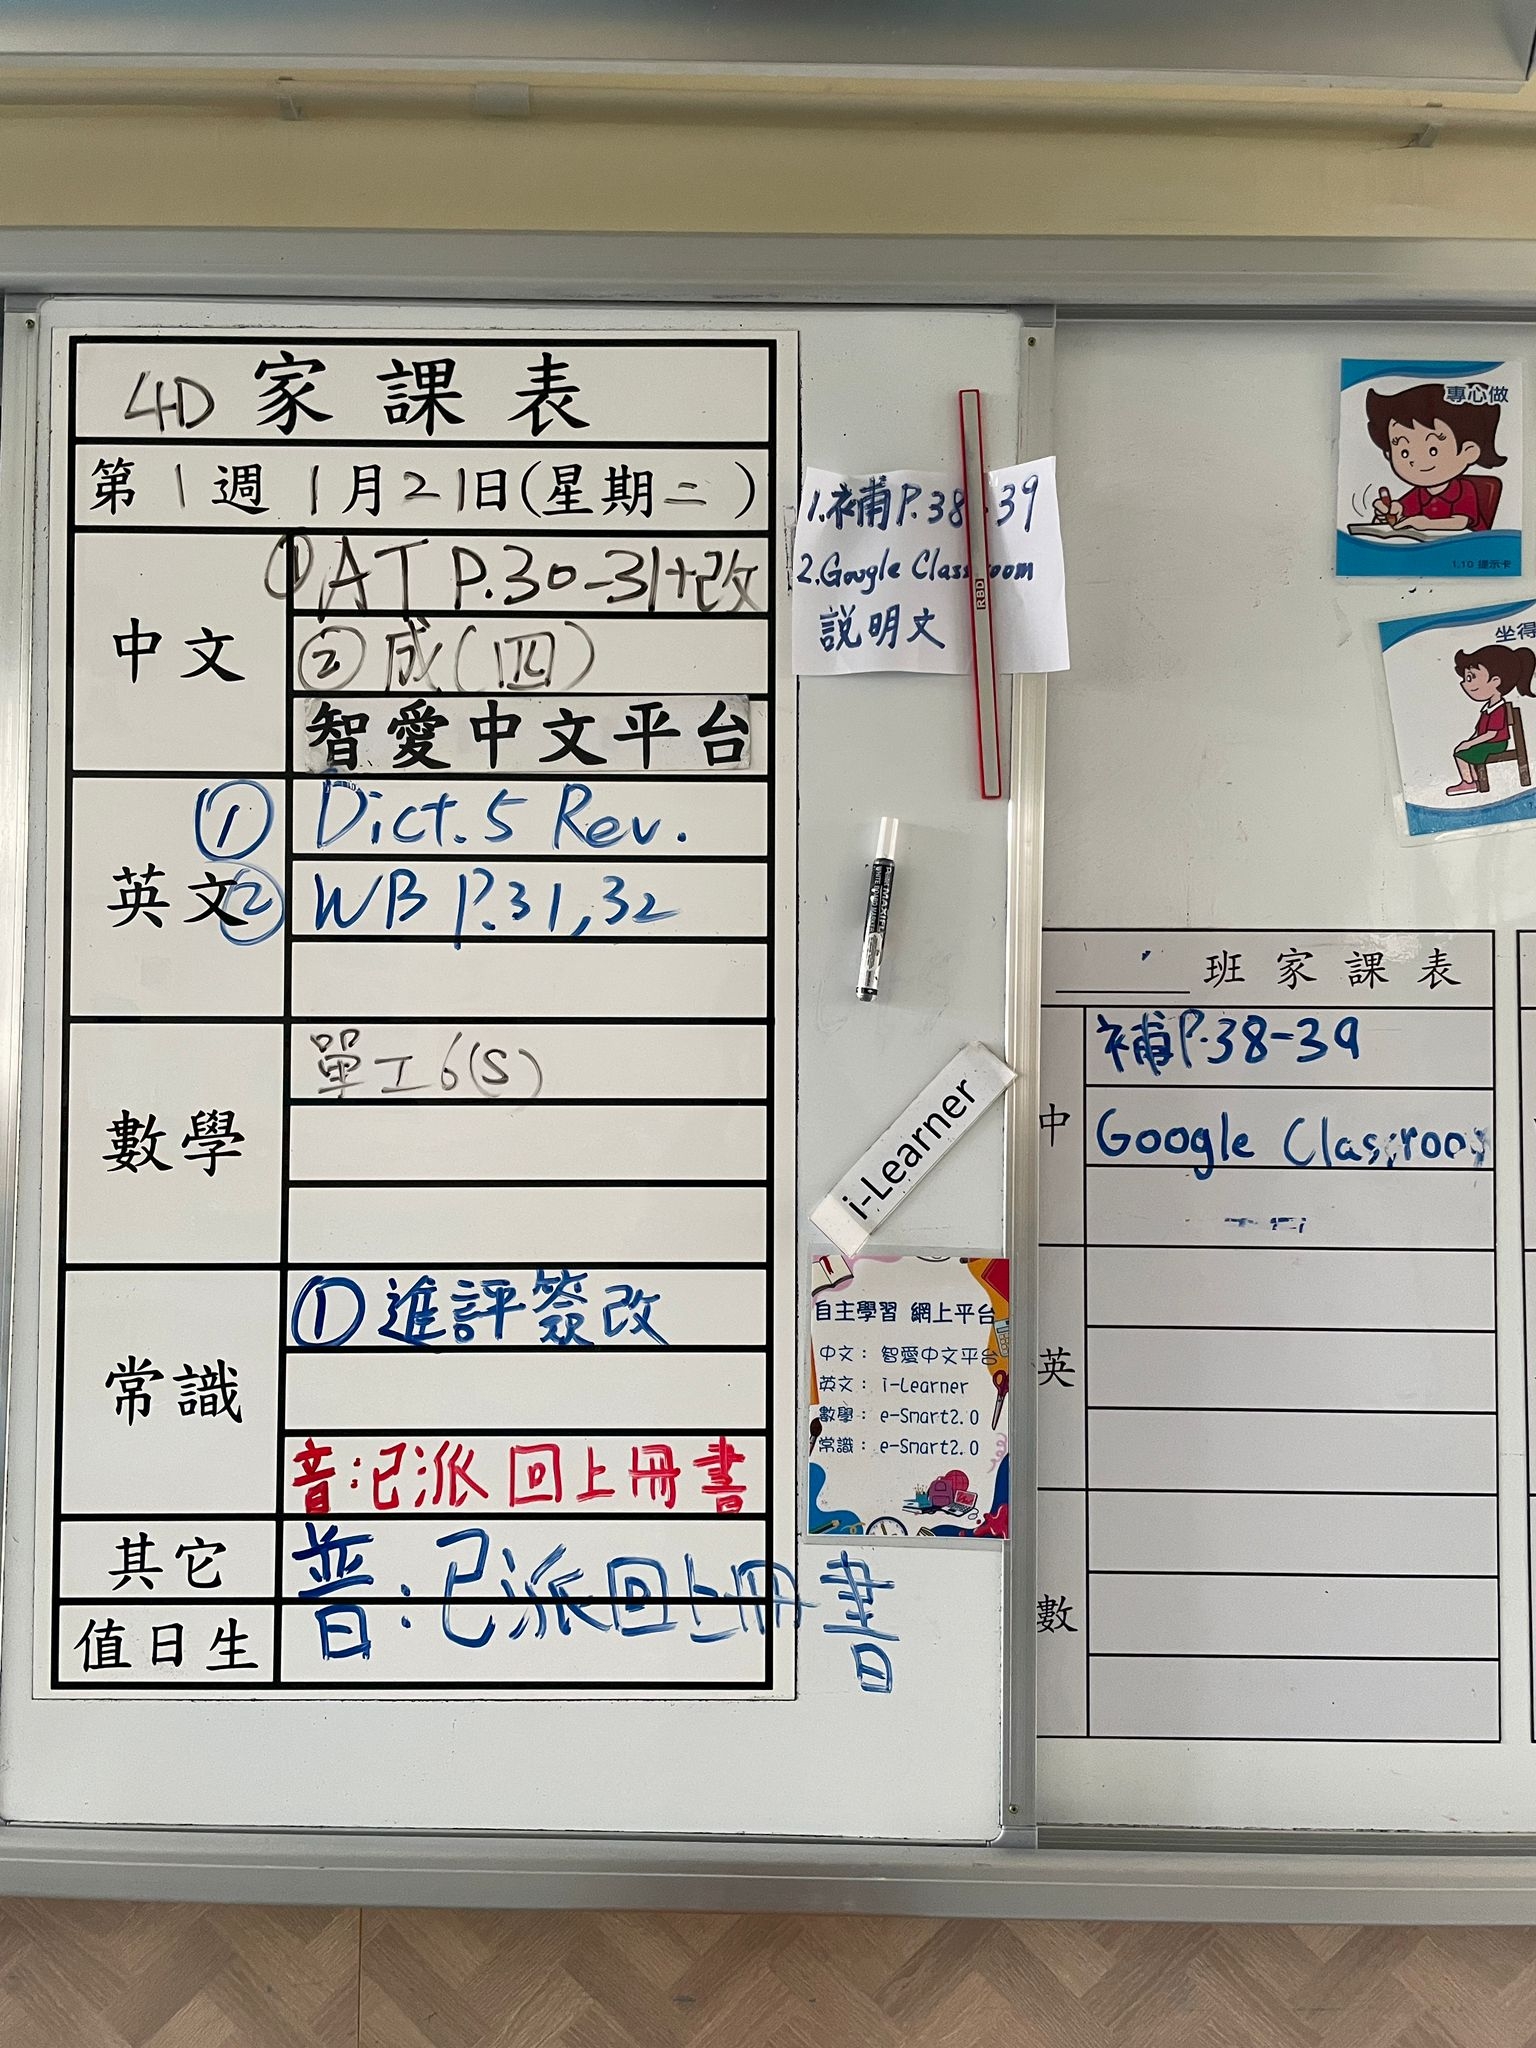 4D 家課表
第 1 週 1 月 21 日(星期二)
中文
①AT P.30-31+改
②成(四)
智愛中文平台
英文
① Dict. 5 Rev.
② WB P.31,32
數學
單工6(S)
常識
①進評簽改
音:已派回上冊書
其它
普:已派回上冊書
值日生
1.補P.38-39
2.Google Classroom
說明文
R8D
i-Learner
自主學習 網上平台
中文: 智愛中文平台
英文: i-Learner
數學: e-Smart2.0
常識: e-Smart2.0
專心做
1.10 提示卡
坐得
班家課表
中
補P.38-39
Google Classroom
英
數